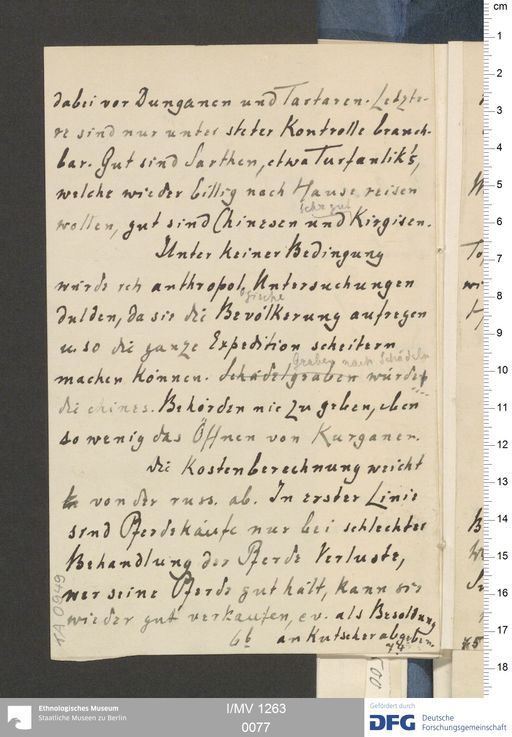 dabei vor Dunganen und Tartaren. Letzte-
re sind nur unter steter Kontrolle brauch-
bar. Gut sind Sarthen, etwa Turfanlik's,
welche wieder billig nach Hause reisen
sehr gut
wollen, gut sind Chinesen und Kirgisen.
Unter keiner Bedingung
würde ich anthropol. Untersuchungen
gische
dulden, da sie die Bevölkerung aufregen
u. so die ganze Expedition scheitern
Graben nach Schädeln
machen können. Schädelgraben würden
die chines. Behörden nie zugeben, eben
so wenig das Öffnen von Kurganen.
Die Kostenberechnung weicht
von der russ. ab. In erster Linie
sind Pferdekäufe nur bei schlechter
Behandlung der Pferde Verluste,
wer seine Pferde gut hält, kann sie
wieder gut verkaufen, ev. als Besoldung
an Kutscher abgeben.
74
75
TA 0949
cm
1
2
3
4
5
6
7
8
9
10
11
12
13
14
15
16
17
18
Ethnologisches Museum
Staatliche Museen zu Berlin
I/MV 1263
0077
Gefördert durch
DFG Deutsche
Forschungsgemeinschaft